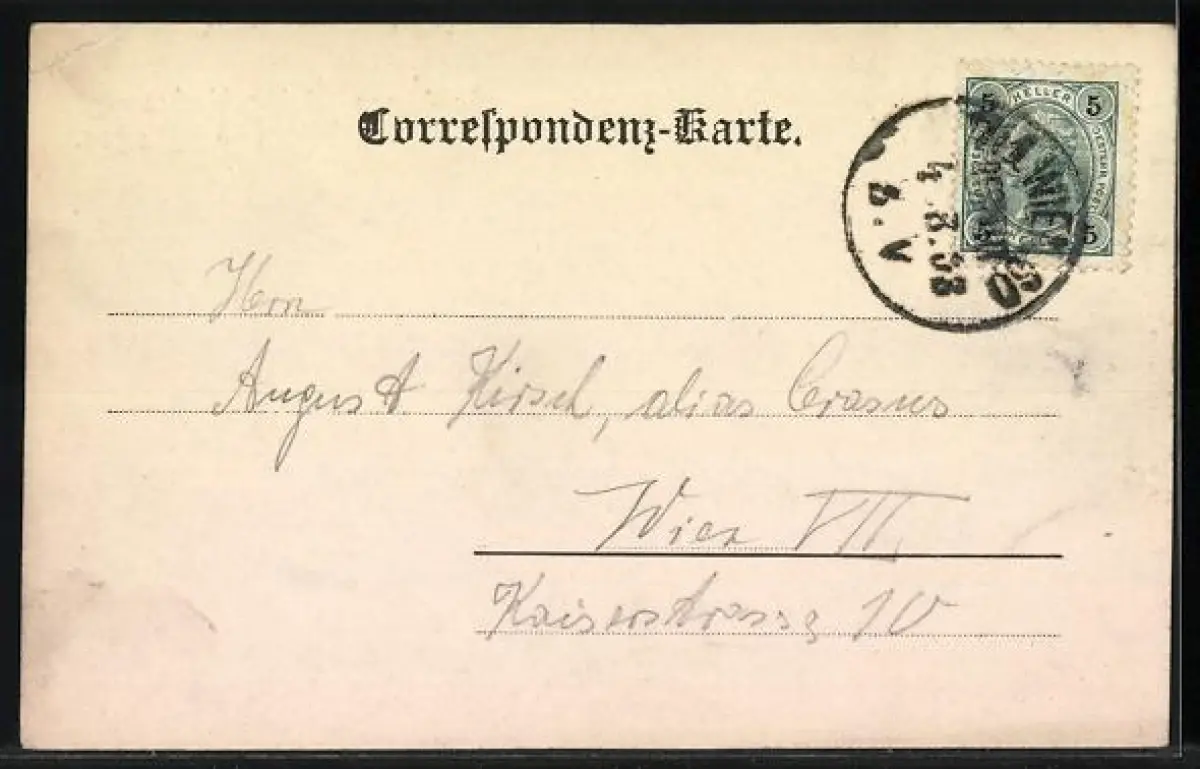 Correspondenz-Karte.
5 HELLER 5
5 5
WIEN
Herrn
August Kirsch, alias Crasus
Wien VII,
Kaiserstrasse 10